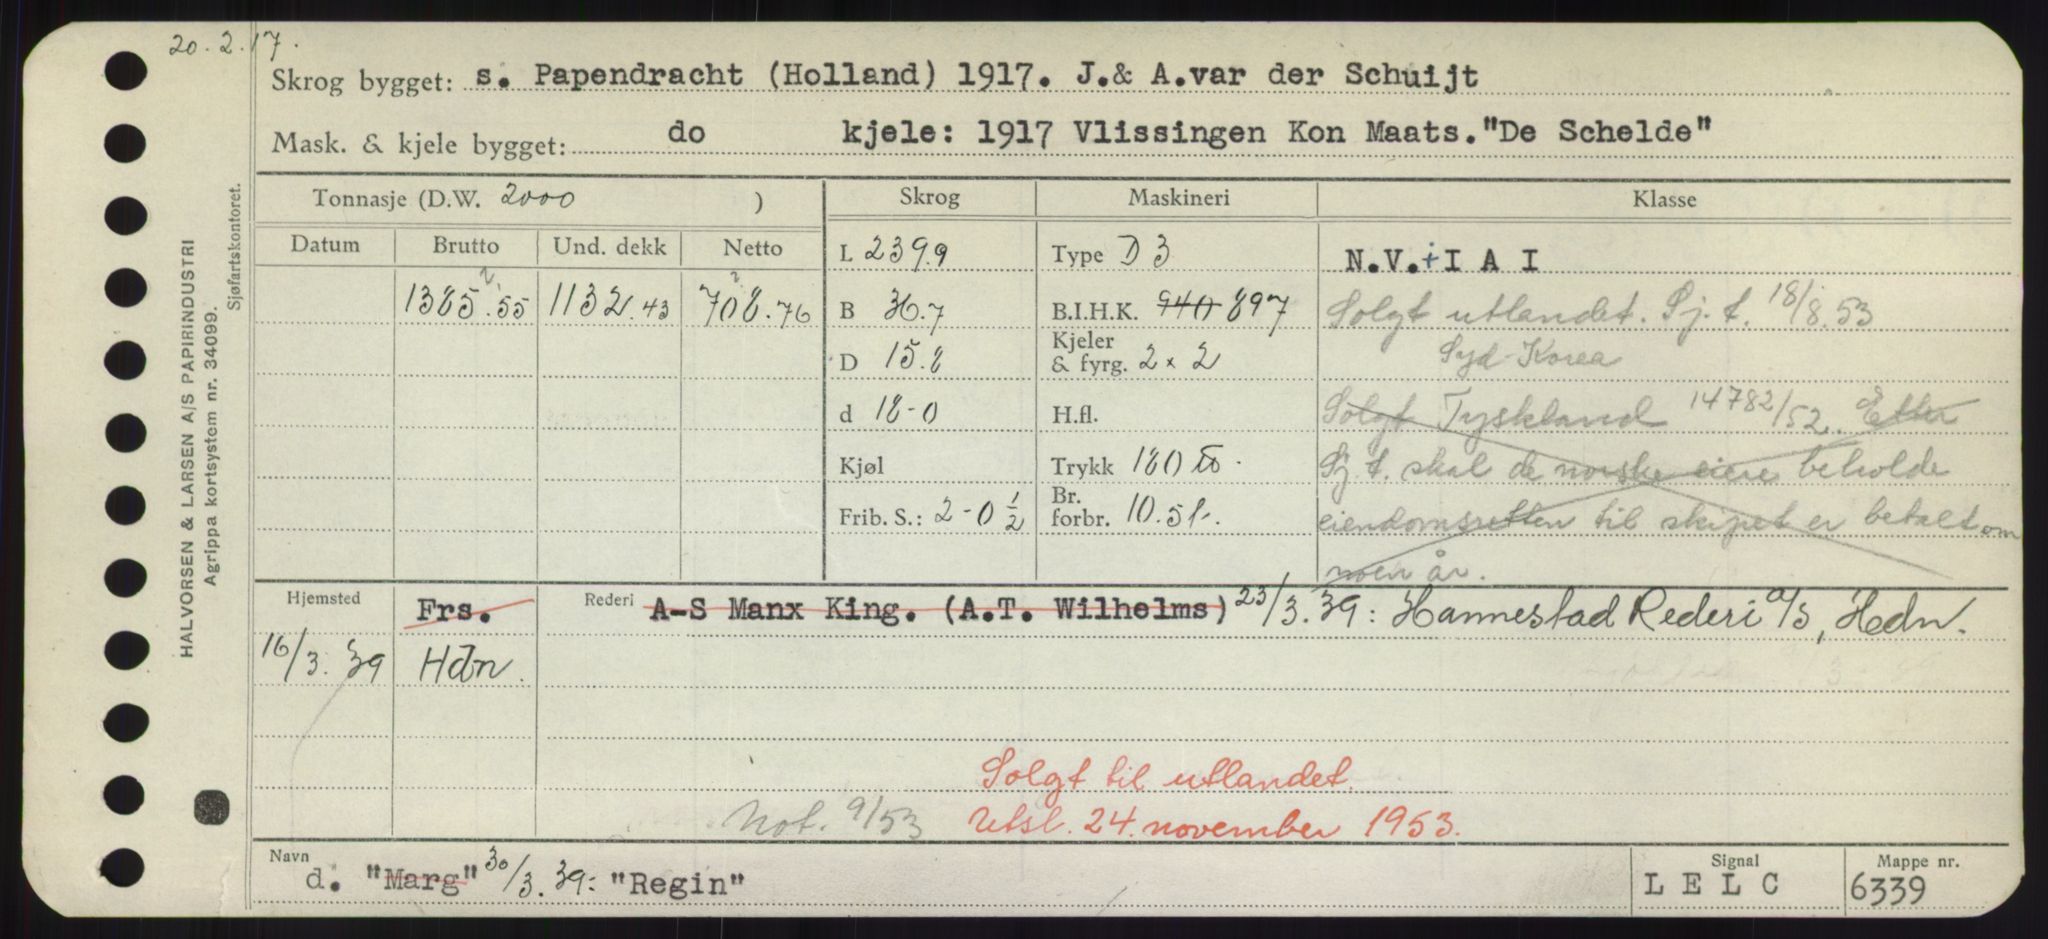 20.2.17.
Skrog bygget: s. Papendracht (Holland) 1917. J.& A.var der Schuijt
Mask. & kjele bygget: do kjele: 1917 Vlissingen Kon Maats."De Schelde"
Tonnasje (D.W. 2000 ) Skrog Maskineri Klasse
Datum Brutto Und. dekk Netto
L 239.9 Type D 3 N.V.+I A I
1385.55 1132.43 708.76 B 36.7 B.I.H.K. 940 897 Solgt utlandet. Sj.t. 18/8.53
D 15.8 Kjeler & fyrg. 2 x 2 Syd-Korea
d 18-0 H.fl. Solgt Tyskland 14782/52. Etter
Kjøl Trykk 180 lb. Sj.t. skal de norske eiere beholde
Frib. S.: 2-0 1/2 Br. forbr. 10.5t. eiendomsretten til skipet er betalt om
noen år.
Hjemsted Frs. Rederi A-S Manx King. (A.T. Wilhelms) 23/3.39: Hannestad Rederi a/s, Hdn.
16/3.39 Hdn.
Solgt til utlandet.
Not. 9/53 Utsl. 24. november 1953.
Navn d. "Marg" 30/3.39: "Regin" Signal L E L C Mappe nr. 6339
HALVORSEN & LARSEN A/S PAPIRINDUSTRI
Agrippa kortsystem nr. 34099.
Sjøfartskontoret.